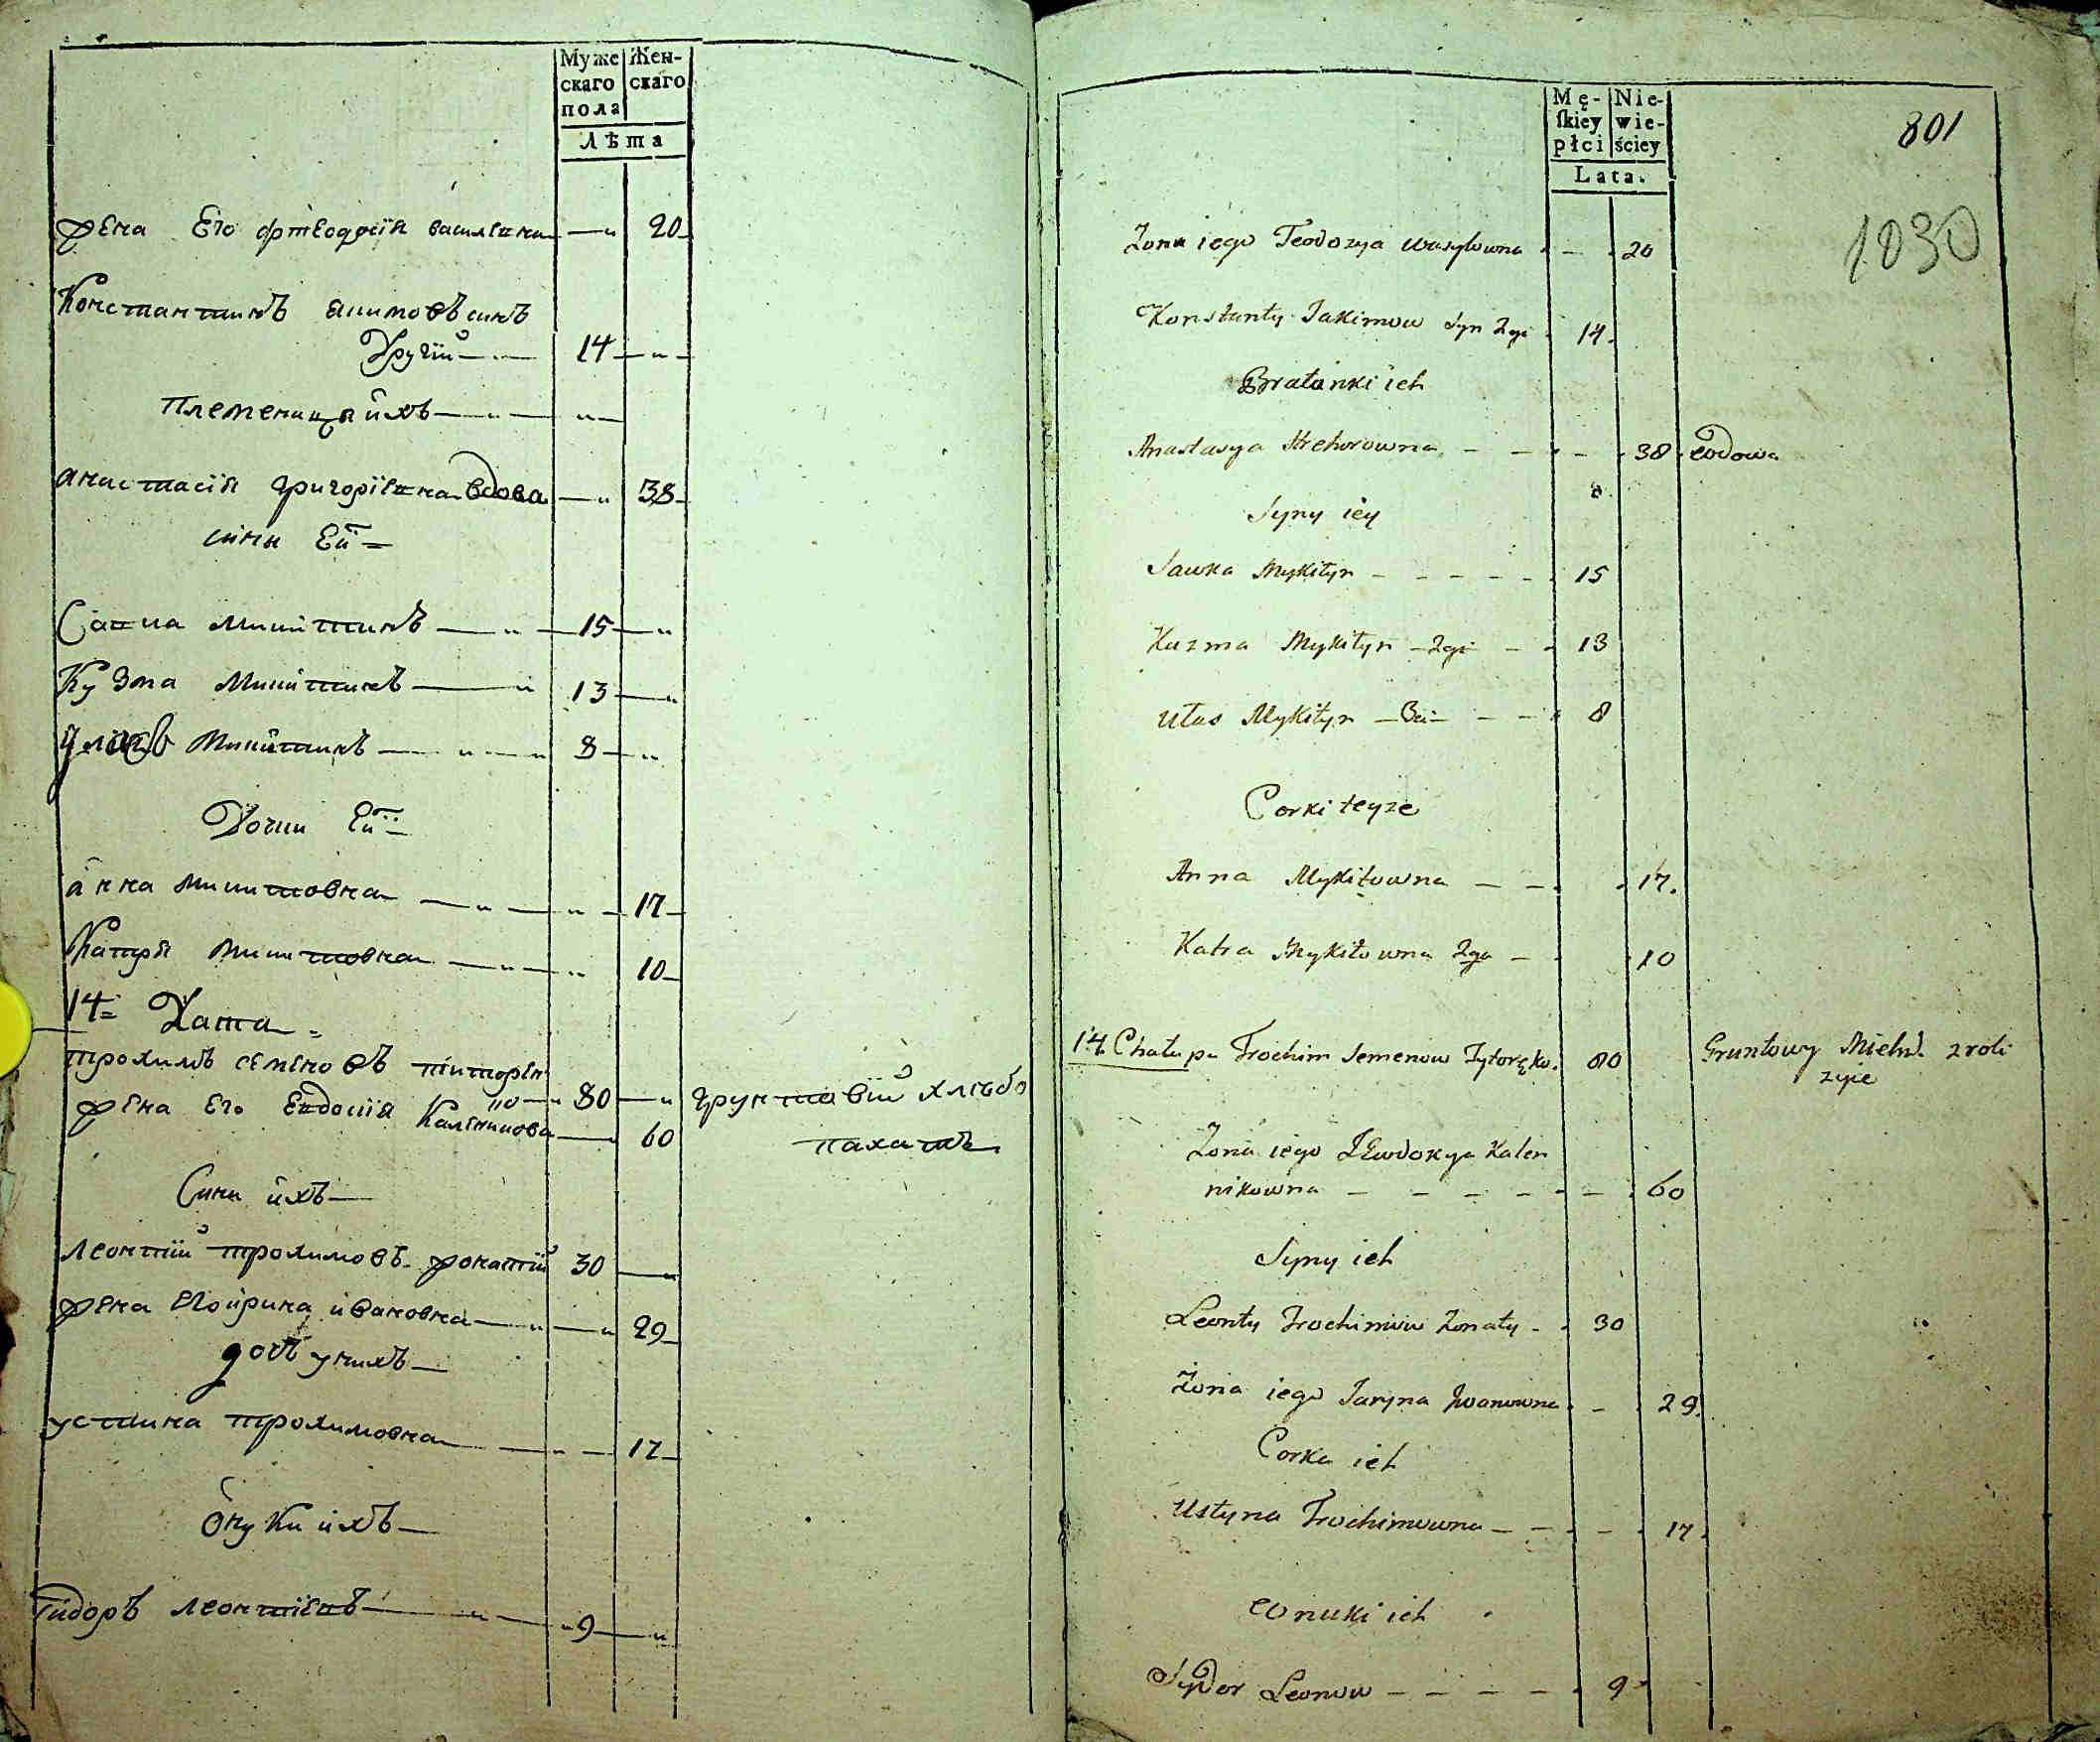 Муже
скаго
пола
Жен-
скаго
Лѣта
жена Его фтеодосїя василевна — „ 20
Константинъ якимовъ синъ
Другїй — 14 — „ —
Племеници ихъ — „ — „ —
анастасїя григорїевна вдова — „ 38
сини Ей =
Савка Микитинъ — „ — 15 — „
Кузма Микитинъ — „ 13 — „
Улясъ Микитинъ — „ — „ 8 — „
Дочки Ей =
анна Микитовна — „ — „ — 17
Катря Микитовна — „ — „ 10
14 = Хата =
трохимъ семеновъ титорен
ко — „ 80 — „ грунтовїй хлѣбо
жена Его Евдокїя Каленикова — 60 пахатъ
Сини ихъ —
леонтїй трохимовъ жонатїй 30 — „
жена Его ирина ивановна — „ — „ 29
дочь у нихъ —
устина трохимовна — „ — 17
Онуки ихъ —
Сидоръ леонтїевъ — „ — „ 9 — „
Mę-
ſkiey
płci
Nie-
wie-
ściey
Lata.
801
1030
Zona iego Teodozya Wasylowna - — - 20
Konstanty Jakimow Syn 2gi - 14.
Bratanki ich
Anastasya Hrehorowna — — - — - 38 Wdowa
Syny iey
Sawka Mykityn — — — — — 15
Kuzma Mykityn — 2gi — — 13
Ułas Mykityn — 3ci — — — 8
Corki teyże
Anna Mykitowna — — - 17.
Katra Mykitowna 2ga — - 10
14 Chata pa Trochim Semenow Tytoręko. 80 Gruntowy Mieszk. z roli
żyie
Zona iego JEwdokya Kalen
nikowna — — — — — — - 60
Syny ich
Leonty Trochimow żonaty - - 30
Żona iego Jaryna Jwanowna - — - 29.
Corka ich
Ustyna Trochimowna — — — - 17.
Wnuki ich
Sydor Leonow — — — — - 9